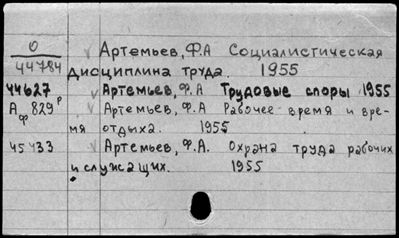 О Артемьев, Ф.А Социалистическая
44784 дисциплина труда. 1955
44627 Артемьев, Ф.А Трудовые споры 1955
А 829 р Артемьев, Ф.А Рабочее время и вре-
ф мя отдыха. 1955
45433 Артемьев, Ф.А. Охрана труда рабочих
и служащих. 1955